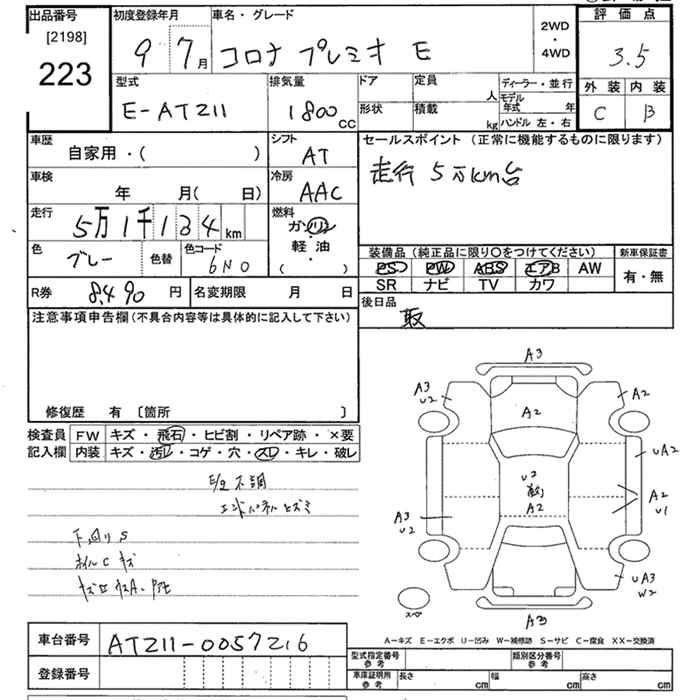 出品番号
[2198]
223
初度登録年月
9 7月
車名・グレード
コロナ プレミオ E
2WD
・
4WD
評価点
3.5
外装 内装
C B
型式
E-AT211
排気量
1800cc
ドア
形状
定員 人
積載 kg
ディーラー・並行
モデル年式 年
ハンドル 左・右
車歴
自家用・( )
シフト
AT
車検
年 月( 日)
冷房
AAC
走行
5万1千134km
燃料
ガソリン
軽・油
( ・ )
色
グレー
色替
色コード
6N0
R券 8,490円
名変期限 月 日
セールスポイント (正常に機能するものに限ります)
走行 5万km台
装備品(純正品に限り○をつけてください)
PS PW ABS エアB AW
SR ナビ TV カワ
新車保証書
有・無
後日品
取
注意事項申告欄(不具合内容等は具体的に記入して下さい)
修復歴 有 [箇所 ]
検査員
記入欄
FW キズ・飛石・ヒビ割・リペア跡・×要
内装 キズ・汚レ・コゲ・穴・スレ・キレ・破レ
不調
下回りS
A3
A3
U2
A2
A2
UA2
U2
A2
A2
U1
A3
U2
UA3
W2
A3
スペ
A-キズ E-エクボ U-凹み W-補修跡 S-サビ C-腐食 XX-交換済
車台番号 AT211-0057216
登録番号
型式指定番号
参考
類別区分番号
参考
車庫証明所
参考
長さ cm 幅 cm 高さ cm